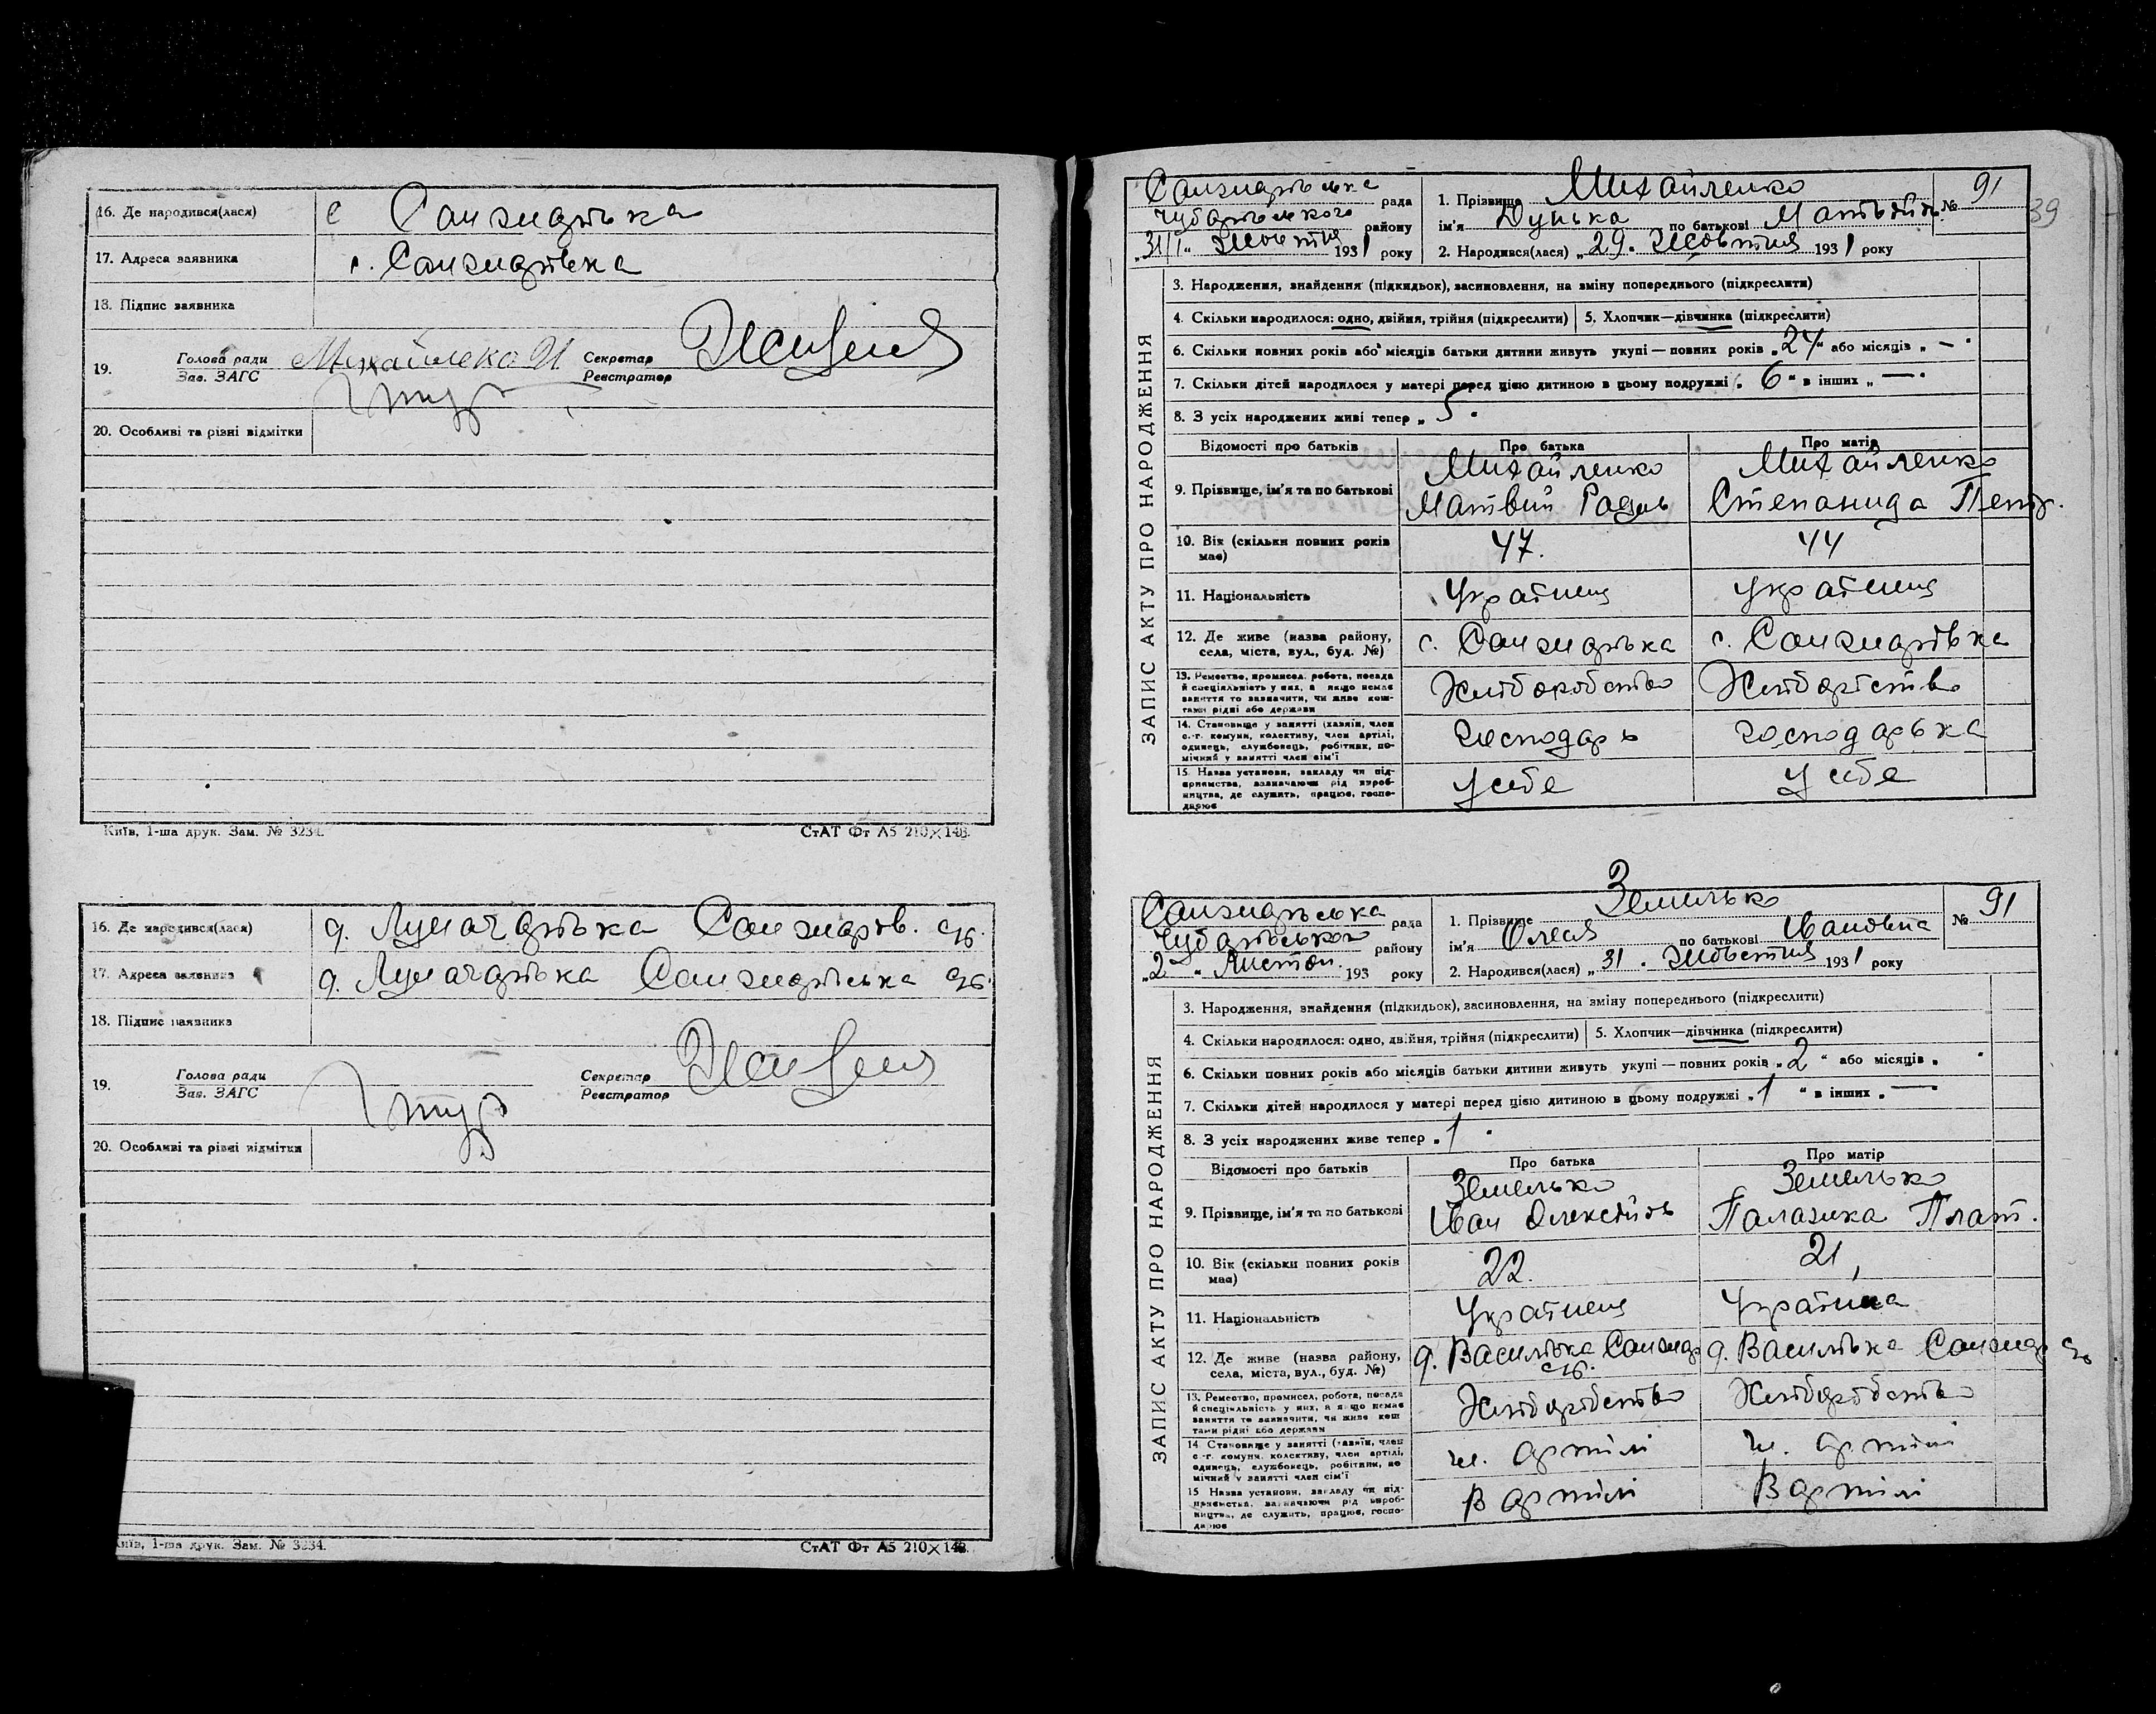 16. Де народився(лася)
с Санжарівка
17. Адреса заявника
с. Санжарівка
18. Підпис заявника
19.
Голова ради
Зав. ЗАГС
Секретар
Реєстратор
20. Особливі та різні відмітки
Київ, 1-ша друк. Зам. № 3234.
СтАТ Фт А5 210×148.
16. Де народився(лася)
17. Адреса заявника
18. Підпис заявника
19.
Голова ради
Зав. ЗАГС
Секретар
Реєстратор
20. Особливі та різні відмітки
Київ, 1-ша друк. Зам. № 3234.
СтАТ Фт А5 210×148.
39
ЗАПИС АКТУ ПРО НАРОДЖЕННЯ
Санжарівська рада
Чубарівського району
1. Прізвище Михайленко
№ 91
ім'я Дунька по батькові Матвійів
"31/X" Жовтня 1931 року
2. Народився(лася) „29. Жовтня 1931 року
3. Народження, знайдення (підкидьок), засиновлення, на зміну попереднього (підкреслити)
4. Скільки народилося: одно, двійня, трійня (підкреслити)
5. Хлопчик—дівчинка (підкреслити)
6. Скільки повних років або місяців батьки дитини живуть укупі — повних років „24" або місяців „—"
7. Скільки дітей народилося у матері перед цією дитиною в цьому подружжі „6" в інших „—"
8. З усіх народжених живі тепер „5"
Відомості про батьків
Про батька
Про матір
9. Прізвище, ім'я та по батькові
Михайленко
Матвій
Михайленко
Степанида Петр.
10. Вік (скільки повних років має)
47.
44
11. Національність
Українец
Українец
12. Де живе (назва району, села, міста, вул., буд. №)
с. Санжарівка
с. Санжарівка
13. Ремество, промисел, робота, посада й спеціяльність у них, а якщо немає заняття то зазначити, чи живе коштами рідні або держави
Хліборобство
14. Становище у занятті (хазяїн, член с.-г. комуни, колективу, член артілі, одинець, службовець, робітник, помічний у занятті член сім'ї
господарь
господарька
15. Назва установи, закладу чи підприємства, зазначаючи рід виробництва, де служить, працює, господарює
у себе
у себе
ЗАПИС АКТУ ПРО НАРОДЖЕННЯ
Санжарівська рада
Чубарівського району
1. Прізвище Земелько
№ 91
ім'я Олеся по батькові Івановна
„2" Листоп. 193 року
2. Народився(лася) „31. Жовтня 1931 року
3. Народження, знайдення (підкидьок), засиновлення, на зміну попереднього (підкреслити)
4. Скільки народилося: одно, двійня, трійня (підкреслити)
5. Хлопчик—дівчинка (підкреслити)
6. Скільки повних років або місяців батьки дитини живуть укупі — повних років „2" або місяців „ "
7. Скільки дітей народилося у матері перед цією дитиною в цьому подружжі „1" в інших „—"
8. З усіх народжених живе тепер „1"
Відомості про батьків
Про батька
Про матір
9. Прізвище, ім'я та по батькові
Земелько
Іван Олексійів
Земелько
Палажка Плат.
10. Вік (скільки повних років має)
22.
21
11. Національність
Українец
Українка
12. Де живе (назва району, села, міста, вул., буд. №)
д. Василівка Санжар
д. Василівка Санжар
13. Ремество, промисел, робота, посада й спеціяльність у них, а якщо немає заняття то зазначити, чи живе коштами рідні або держави
Хліборобство
Хліборобство
14. Становище у занятті (хазяїн, член с.-г. комуни, колективу, член артілі, одинець, службовець, робітник, помічний у занятті член сім'ї
чл. артілі
чл. артілі
15. Назва установи, закладу чи підприємства, зазначаючи рід виробництва, де служить, працює, господарює
В артілі
В артілі